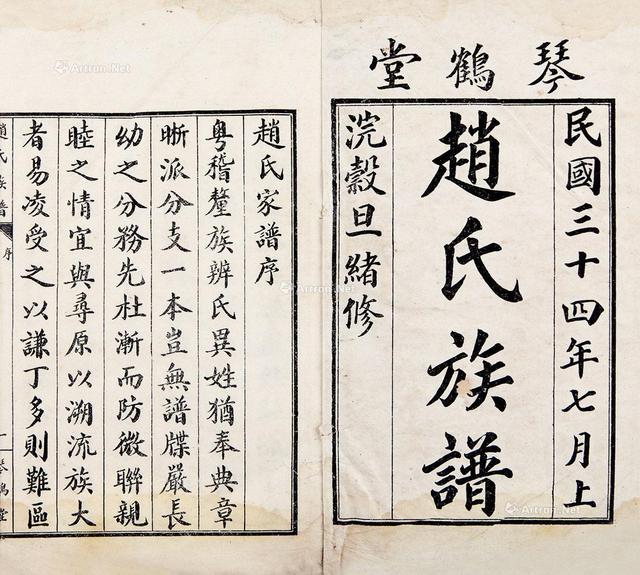 琴鶴堂
民國三十四年七月上
趙氏族譜
浣穀旦緒修
趙氏家譜序
粵稽釐族辨氏異姓猶奉典章
晰派分支一本豈無譜牒嚴長
幼之分務先杜漸而防微聯親
睦之情宜與尋原以溯流族大
者易凌受之以謙丁多則難區
趙氏族譜
序
一
琴鶴堂
Artron.Net
Artron.Net
Artron.Net
Artron.Net